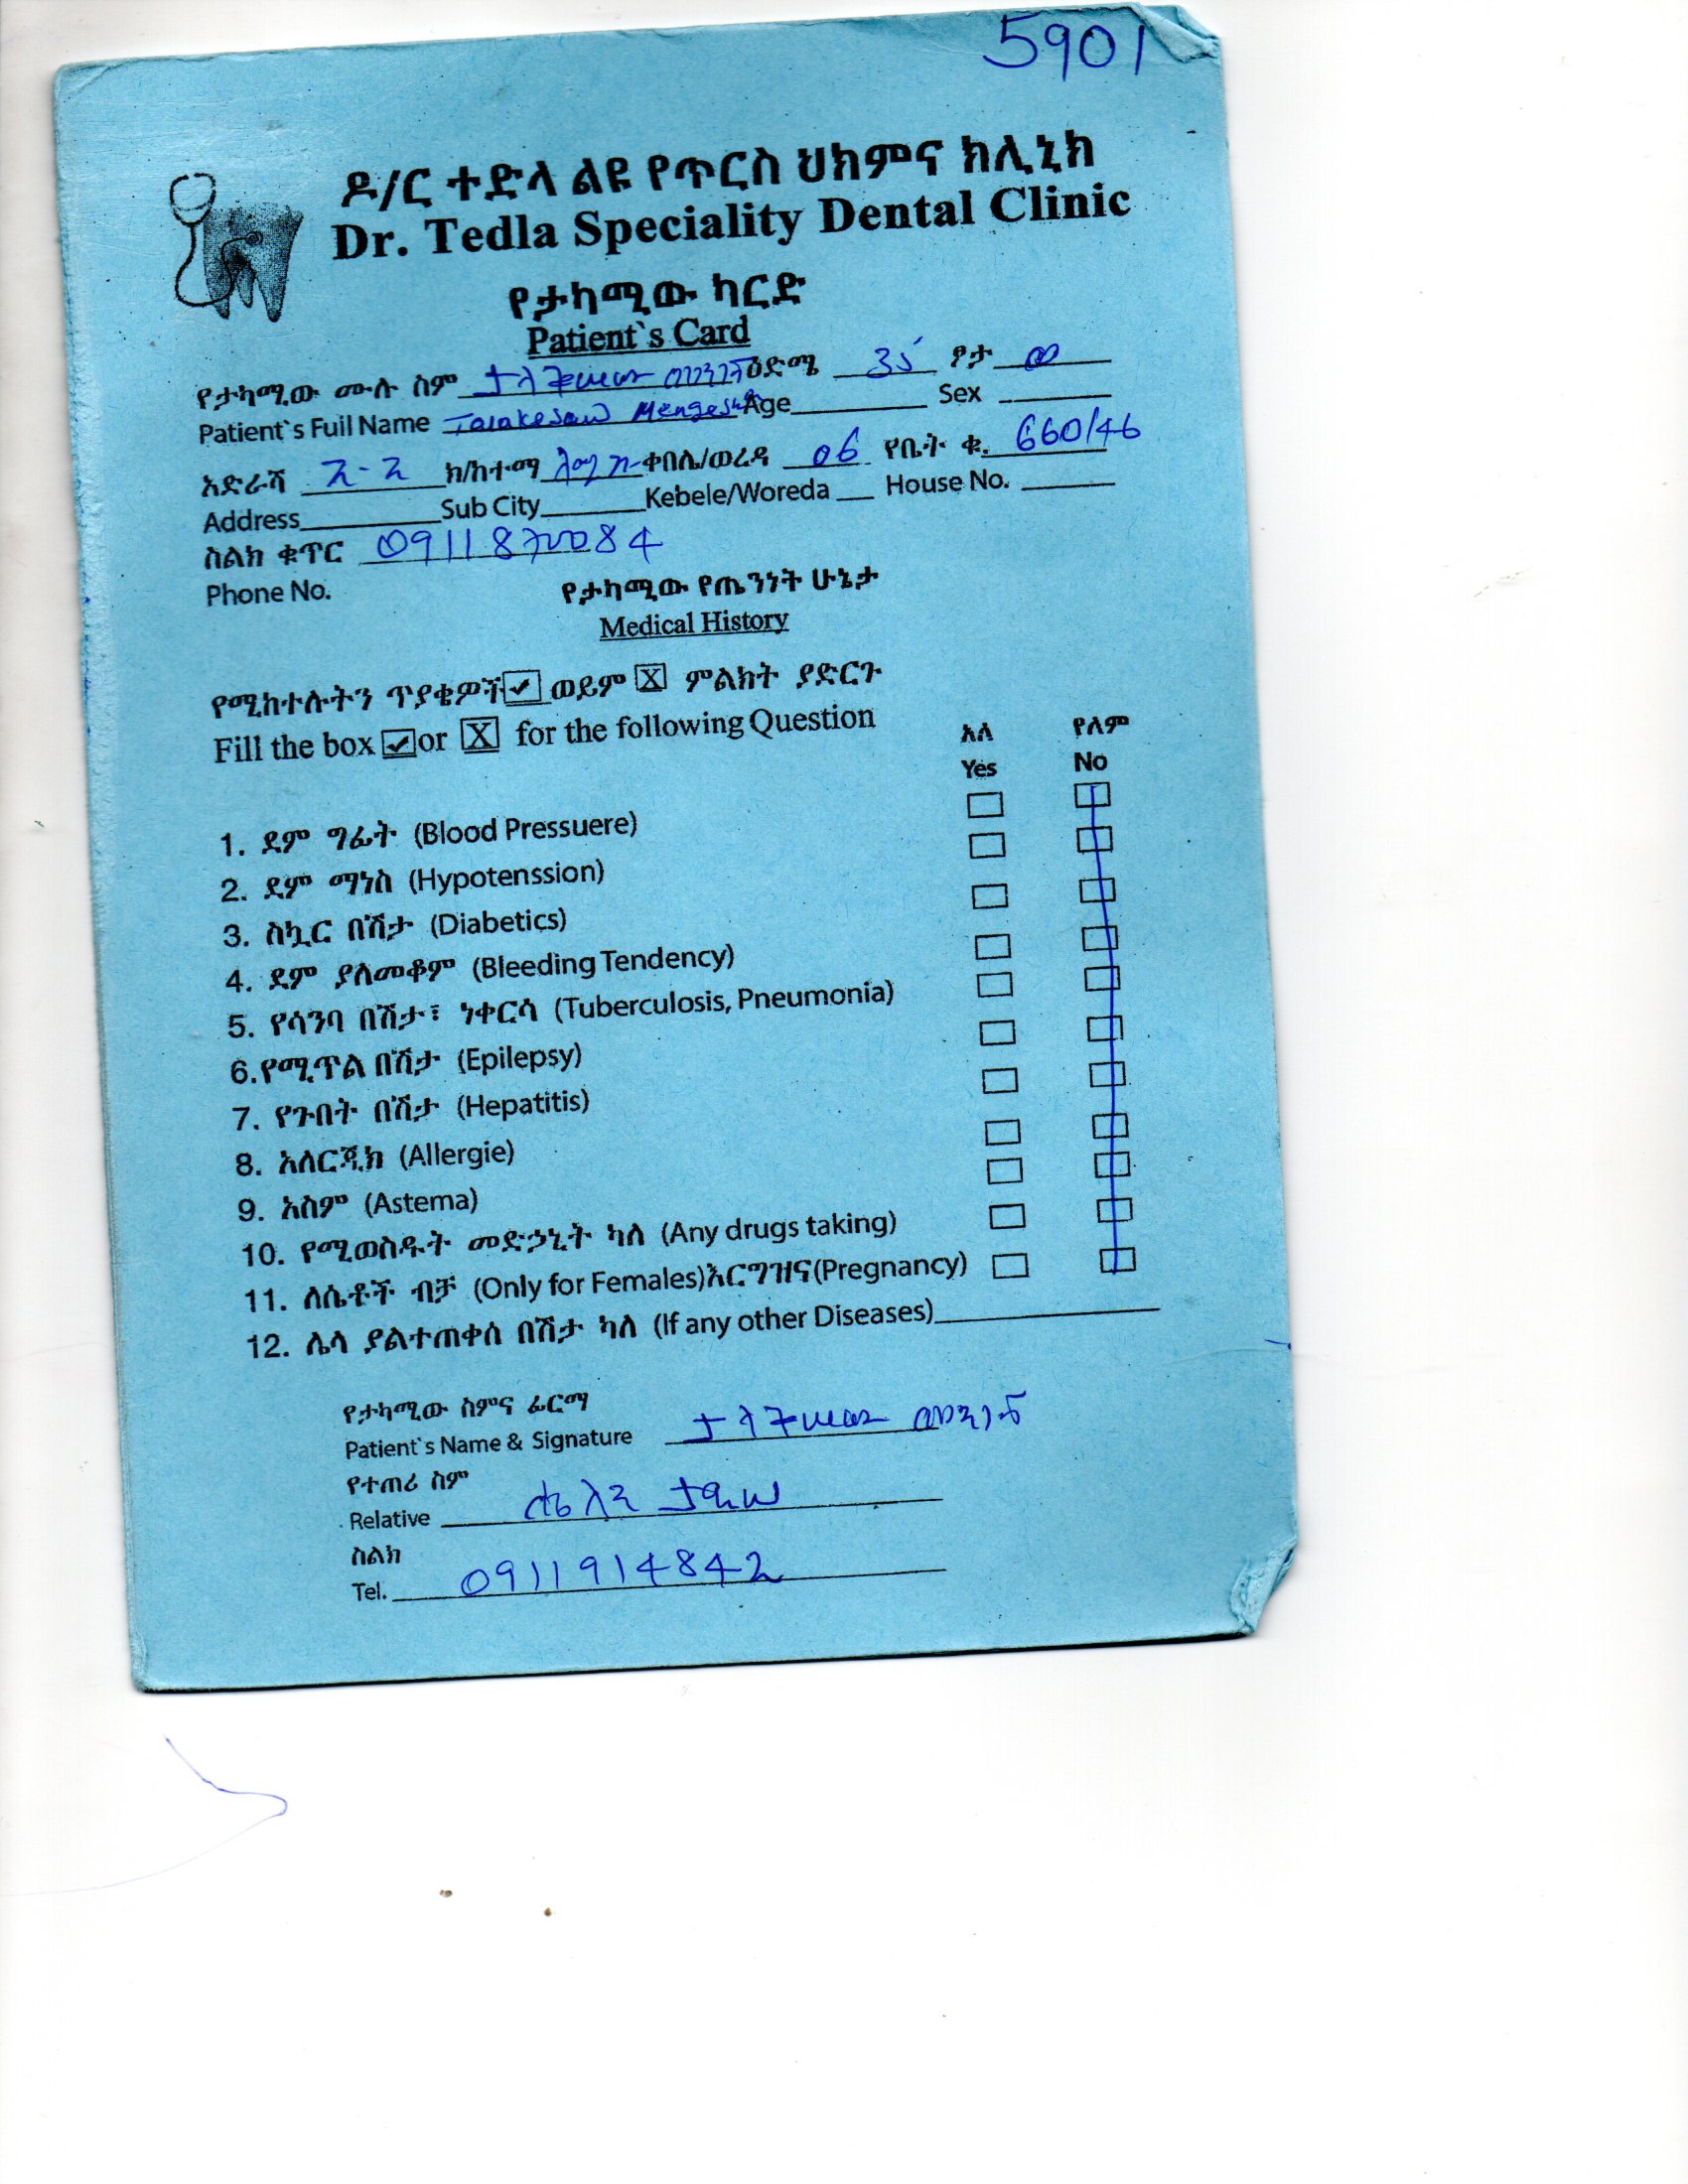 5901
ዶ/ር ተድላ ልዩ የጥርስ ህክምና ክሊኒክ
Dr. Tedla Speciality Dental Clinic
የታካሚው ካርድ
Patient`s Card
የታካሚው ሙሉ ስም ዕድሜ 35 ፆታ ወ
Patient`s Fuil Name Talakesaw Mengesha Age Sex
አድራሻ አ-አ ክ/ከተማ ቀበሌ/ወረዳ 06 የቤት ቁ. 660/46
Address Sub City Kebele/Woreda House No.
ስልክ ቁጥር
Phone No.
የታካሚው የጤንነት ሁኔታ
Medical History
የሚከተሉትን ጥያቄዎች ወይም X ምልክት ያድርጉ
Fill the box ✓ or X for the following Question
አለ የለም
Yes No
1. ደም ግፊት (Blood Pressuere)
2. ደም ማነስ (Hypotenssion)
3. ስኳር በሽታ (Diabetics)
4. ደም ያለመቆም (Bleeding Tendency)
5. የሳንባ በሽታ፣ ነቀርሳ (Tuberculosis, Pneumonia)
6.የሚጥል በሽታ (Epilepsy)
7. የጉበት በሽታ (Hepatitis)
8. አለርጂክ (Allergie)
9. አስም (Astema)
10. የሚወስዱት መድኃኒት ካለ (Any drugs taking)
11. ለሴቶች ብቻ (Only for Females)እርግዝና(Pregnancy)
12. ሌላ ያልተጠቀሰ በሽታ ካለ (If any other Diseases)
የታካሚው ስምና ፊርማ
Patient`s Name & Signature
የተጠሪ ስም
Relative
ስልክ
Tel. 0911914842